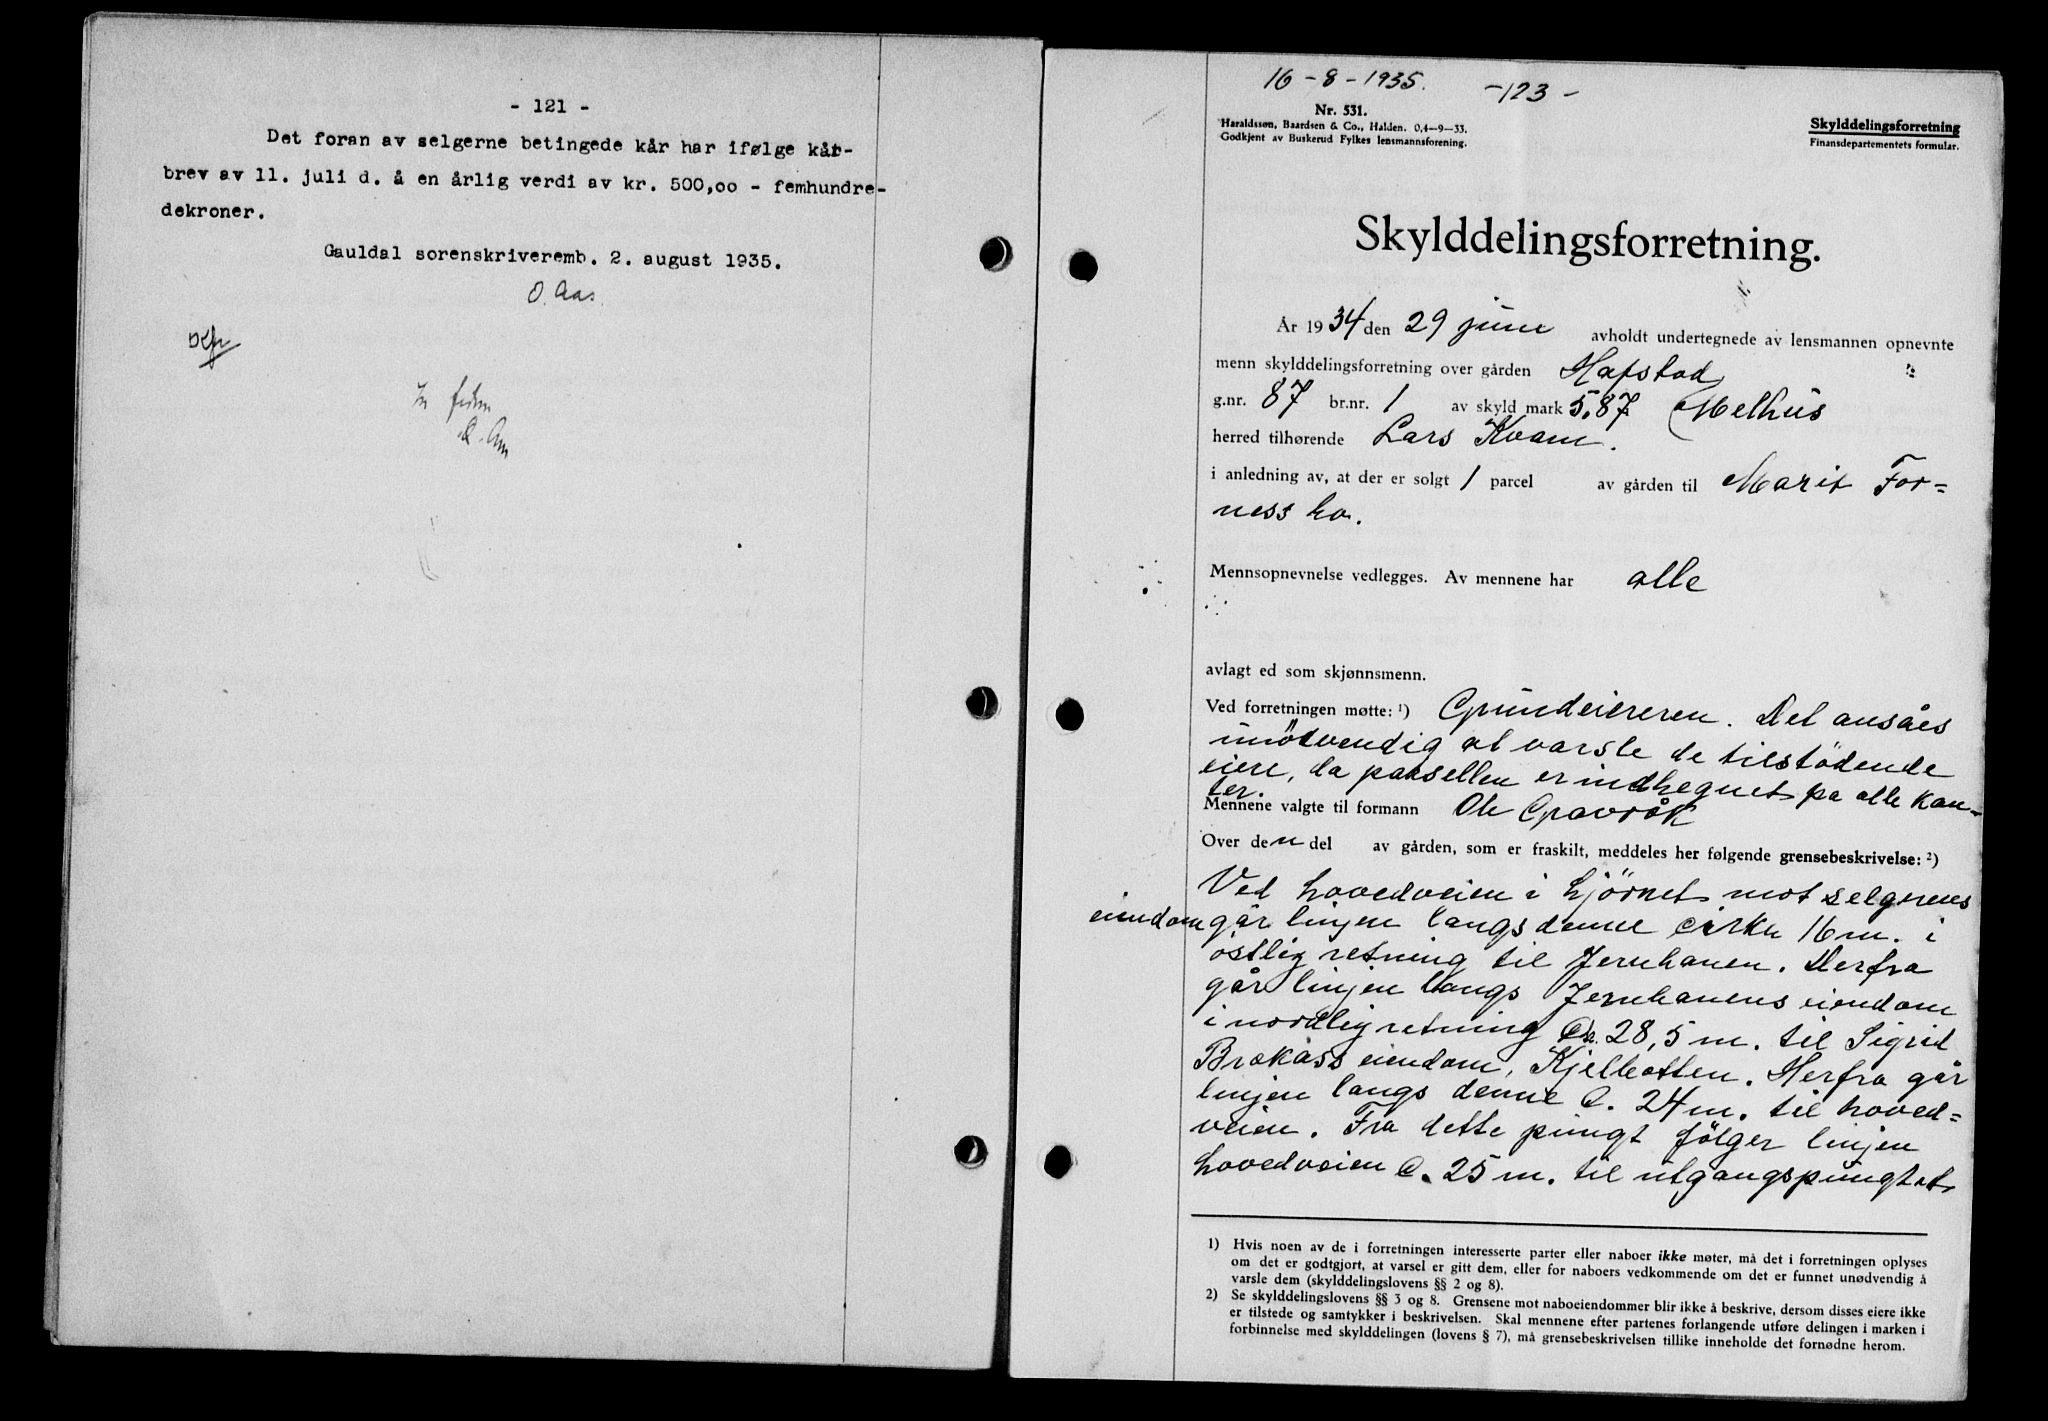 - 121 -
Det foran av selgerne betingede kår har ifølge kår-
brev av 11. juli d. å en årlig verdi av kr. 500,00 - femhundre-
dekroner.
Gauldal sorenskriveremb. 2. august 1935.
O. Aas.
16-8-1935.
-123-
Nr. 531.
Haraldssøn, Baardsen & Co., Halden. 0,4—9—33.
Godkjent av Buskerud Fylkes lensmannsforening.
Skylddelingsforretning
Finansdepartementets formular.
Skylddelingsforretning.
År 1934 den 29 juni avholdt undertegnede av lensmannen opnevnte
menn skylddelingsforretning over gården Hafstad
g.nr. 87 br.nr. 1 av skyld mark 5,87 Melhus
herred tilhørende Lars Kvam.
i anledning av, at der er solgt 1 parcel av gården til Marit For=
ness
Mennsopnevnelse vedlegges. Av mennene har alle
avlagt ed som skjønnsmenn.
Ved forretningen møtte: 1) Grundeiereren. Det ansåes
unödvendig at varsle de tilstödende
eiere, da parsellen er indhegnet på alle kan-
ter.
Mennene valgte til formann Ole Gravråk
Over den del av gården, som er fraskilt, meddeles her følgende grensebeskrivelse: 2)
Ved hovedveien i hjörnet mot selgerens
eiendom går linjen langs denne cirka 16 m. i
östlig retning til Jernbanen. Derfra
går linjen langs Jernbanens eiendom
i nordlig retning ca. 28,5 m. til Sigrid
Brekåss eiendom, Kjelbotten. Herfra går
linjen langs denne c. 24 m. til hoved=
veien. Fra dette pungt fölger linjen
hovedveien c. 25 m. til utgangspungtet
1) Hvis noen av de i forretningen interesserte parter eller naboer ikke møter, må det i forretningen oplyses
om det er godtgjort, at varsel er gitt dem, eller for naboers vedkommende om det er funnet unødvendig å
varsle dem (skylddelingslovens §§ 2 og 8).
2) Se skylddelingslovens §§ 3 og 8. Grensene mot naboeiendommer blir ikke å beskrive, dersom disses eiere ikke
er tilstede og samtykker i beskrivelsen. Skal mennene efter partenes forlangende utføre delingen i marken i
forbinnelse med skylddelingen (lovens § 7), må grensebeskrivelsen tillike inneholde det fornødne herom.